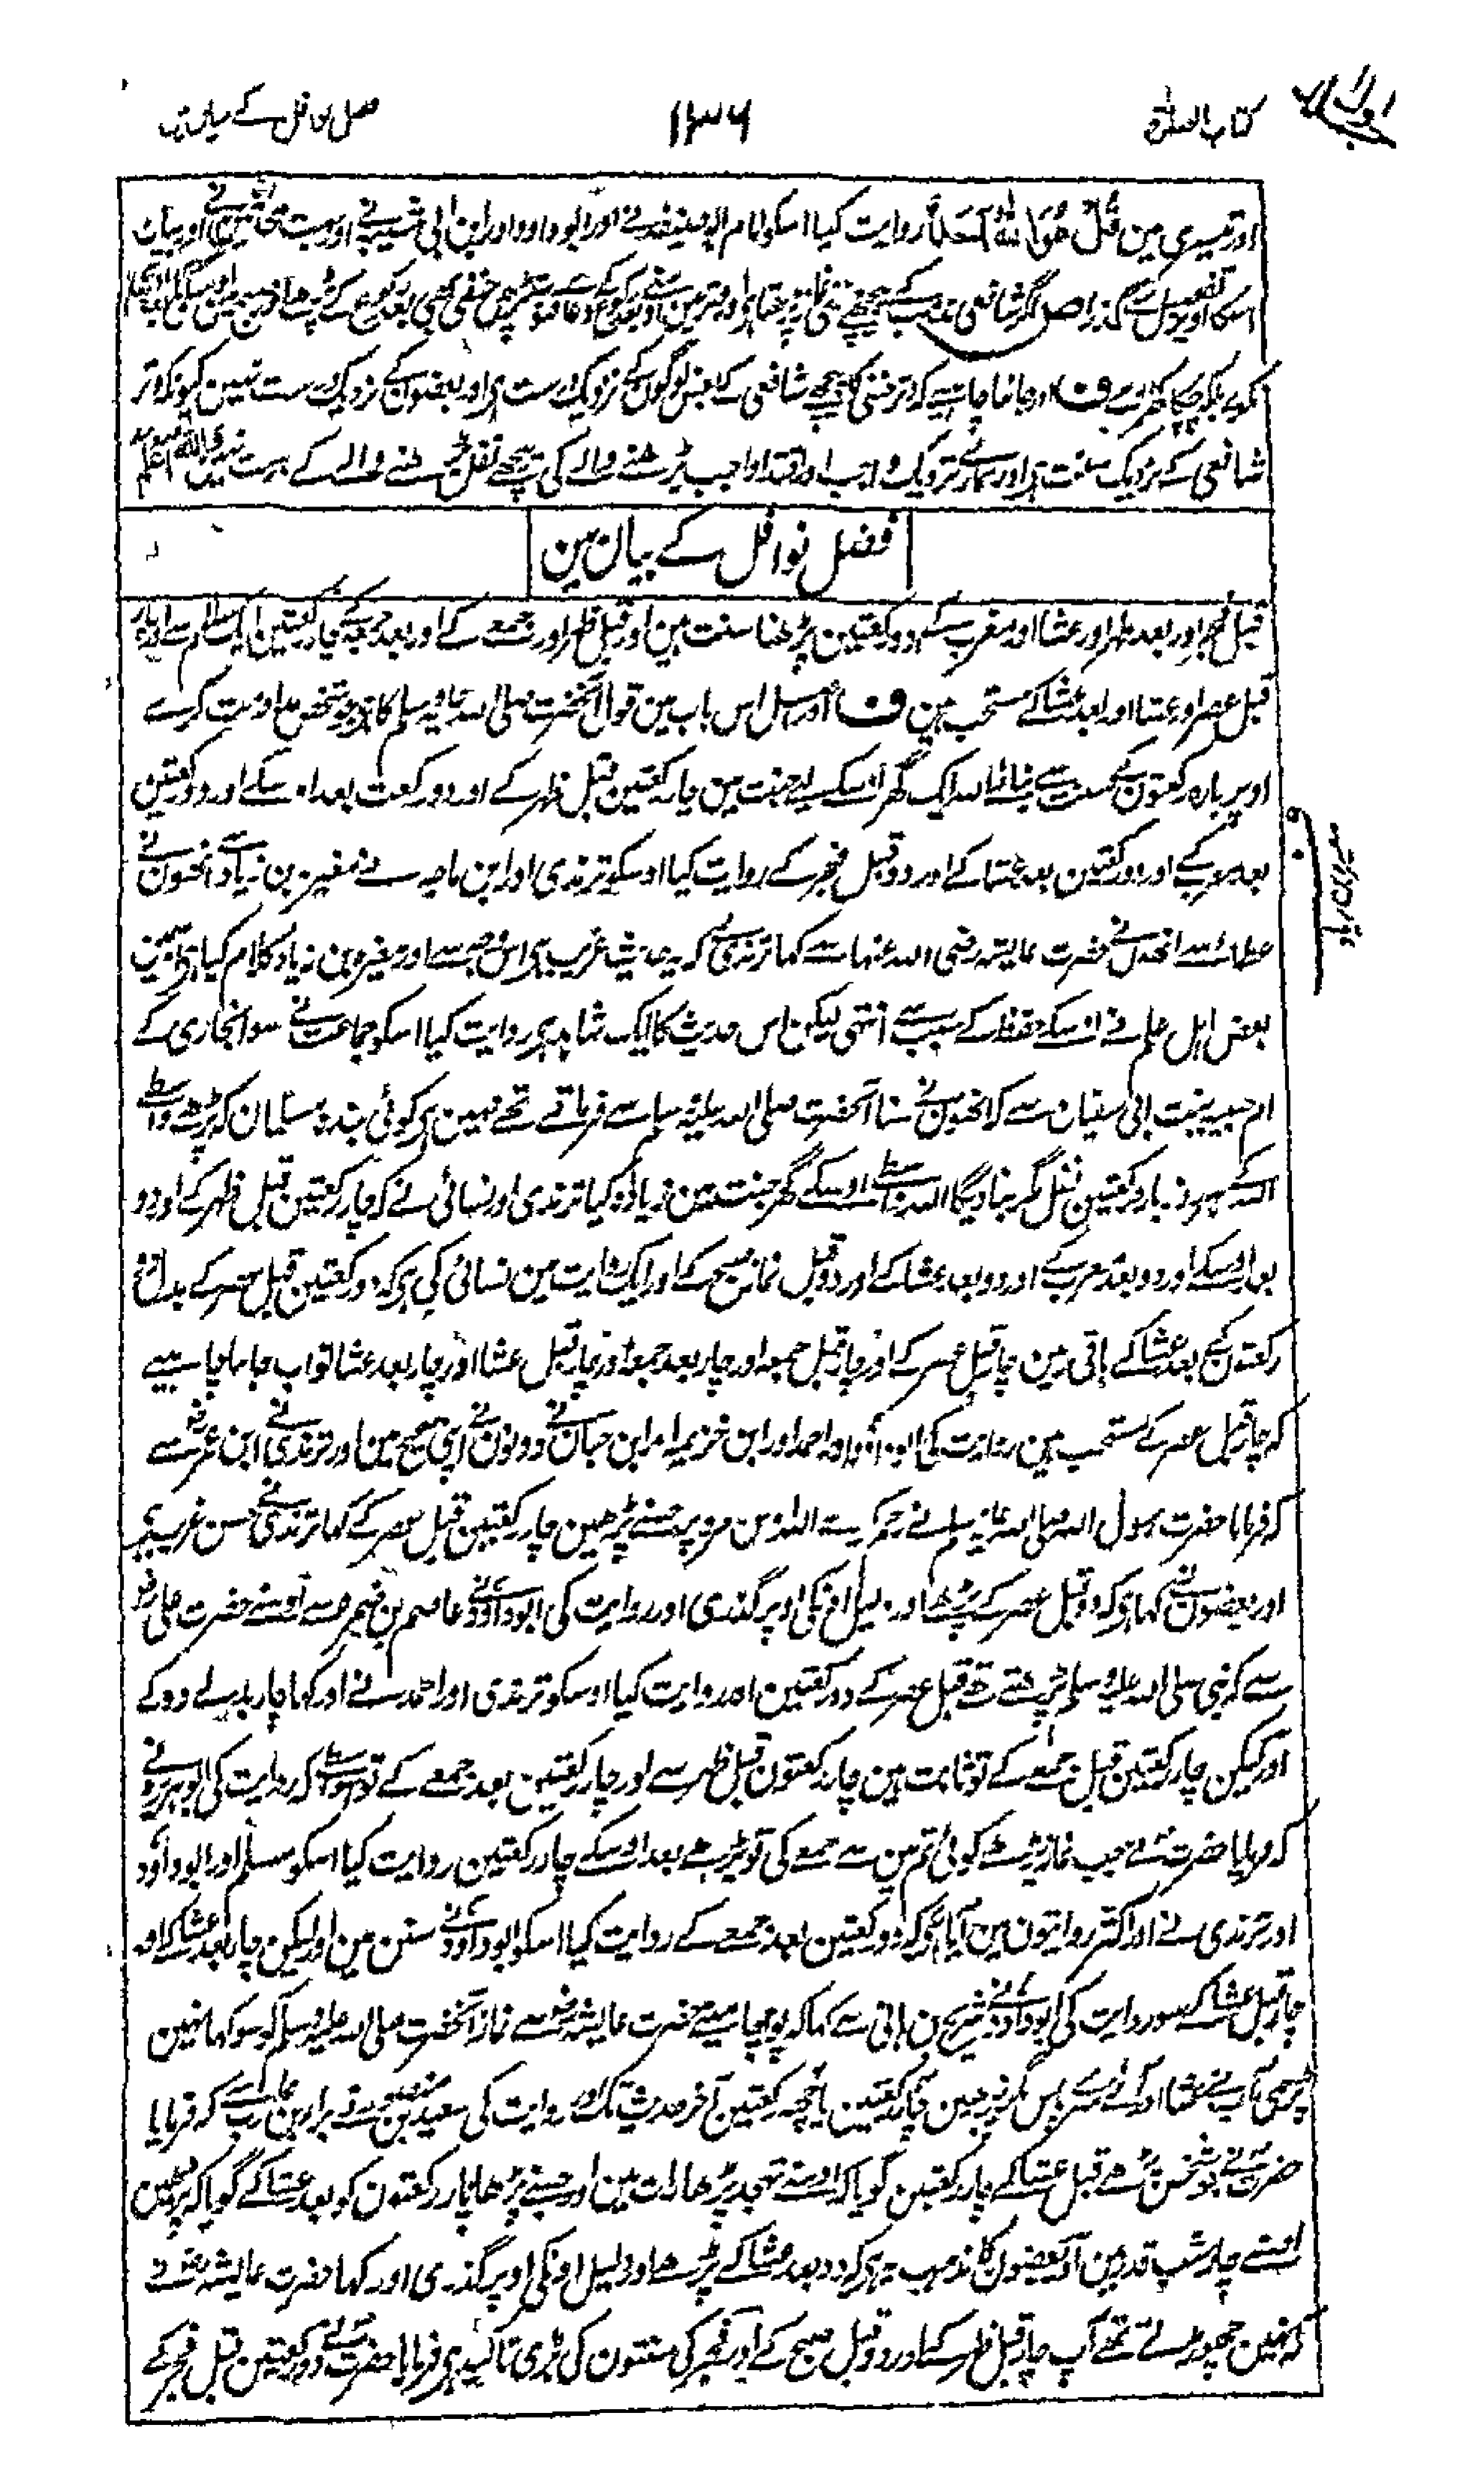 کتاب الصلوٰۃ
۱۳۶
فصل نوافل کے بیان مین
اور تیسری مین قُلْ هُوَ اللّٰهُ اَحَدٌ روایت کیا اسکو امام ابوحنیفہ نے اور ابو داود اور ابن ابی شیبہ نے اور بہت محدثین نے اور بیان
اسکا اوپر تفصیل سے گذرا ص اگر شافعی مذہب کے پیچھے حنفی نماز پڑھتا ہو اور وتر مین بعد رکوع کے دعاء قنوت پڑھے حنفی بھی بعد رکوع کے پڑھے اور فجر مین
نکرے بلکہ چپکا کھڑا رہے ف اور جاننا چاہیے کہ وتر حنفی کا پیچھے شافعی کے بعض لوگون کے نزدیک درست ہی اور بعضون کے نزدیک درست نہین کیونکہ وتر
شافعی کے نزدیک سنت ہی اور ہمارے نزدیک واجب اور اقتدا واجب پڑھنے والے کی پیچھے نفل پڑھنے والے کے درست نہین واللہ اعلم
فصل نوافل کے بیان مین
قبل فجر اور بعد ظہر اور عشا اور مغرب کے دو رکعتین پڑھنا سنت ہین اور قبل ظہر اور جمعے کے اور بعد جمعے کے چار رکعتین ایک سلام سے اور چار
قبل عصر اور عشا اور بعد عشا کے مستحب ہین ف اور اصل اس باب مین قول آنحضرت صلی اللہ علیہ وسلم کا ہی جو شخص مداومت کرے
اوپر بارہ رکعتون کے سنت سے بناتا ہی اللہ ایک گھر اسکے لیے جنت مین چار رکعتین قبل ظہر کے اور دو رکعت بعد اسکے اور دو رکعتین
بعد مغرب کے اور دو رکعتین بعد عشا کے اور دو قبل فجر کے روایت کیا اوسکو ترمذی اور ابن ماجہ نے مغیرہ بن زیاد سے انھون نے
عطا سے انھون نے حضرت عایشہ رضی اللہ عنہا سے کہا ترمذی نے کہ یہ حدیث غریب ہی اس وجہ سے اور مغیرہ بن زیاد کلام کیا ہی اسمین
بعض اہل علم نے اوسکے حفظ کے سبب سے انتہی لیکن اس حدیث کا ایک شاہد ہی روایت کیا اسکو جماعت نے سوا بخاری کے
ام حبیبہ بنت ابی سفیان سے کہ انھون نے سنا آنحضرت صلی اللہ علیہ وسلم سے فرماتے تھے نہین ہی کوئی بندہ مسلمان کہ پڑھے واسطے
اللہ کے ہر روز بارہ رکعتین نفل مگر بنا دیگا اللہ واسطے اوسکے گھر جنت مین زیادہ کیا ترمذی اور نسائی نے کہ چار رکعتین قبل ظہر کے اور دو
بعد اوسکے اور دو بعد مغرب کے اور دو بعد عشا کے اور دو قبل نماز صبح کے اور ایک روایت مین نسائی کی ہی کہ دو رکعتین قبل عصر کے بدلے
رکعتون کے بعد عشا کے باقی رہین چار قبل عصر کے اور چار قبل جمعہ اور چار بعد جمعہ اور چار قبل عشا اور چار بعد عشا تو اب جاننا چاہیے
کہ چار قبل عصر کے مستحب ہین روایت کی ابو داود اور احمد اور ابن خزیمہ اور ابن حبان نے دونون نے اپنی صحیح مین اور ترمذی نے ابن عمر سے
کہ فرمایا حضرت رسول اللہ صلی اللہ علیہ وسلم نے رحم کرے اللہ اس مرد پر جسنے پڑھین چار رکعتین قبل عصر کے کہا ترمذی نے حسن غریب ہی
اور بعضون نے کہا ہی کہ دو قبل عصر کے پڑھے اور دلیل انکی اوپر گذری اور روایت کی ابو داود نے عاصم بن ضمرہ سے اوسنے حضرت علی
سے کہ نبی صلی اللہ علیہ وسلم پڑھتے تھے قبل عصر کے دو رکعتین اور روایت کیا اوسکو ترمذی اور احمد نے اور کہا چار بدلے دو کے
اور لیکن چار رکعتین قبل جمعے کے تو ثابت ہین چار رکعتون قبل ظہر سے اور چار رکعتین بعد جمعے کے تو اسواسطے کہ روایت کی ابو ہریرہ نے
کہ فرمایا حضرت نے جب نماز پڑھے کوئی تم مین سے جمعے کی تو پڑھے بعد اوسکے چار رکعتین روایت کیا اسکو مسلم اور ابو داود
اور ترمذی نے اور اکثر روایتون مین آیا ہی کہ دو رکعتین بعد جمعے کے روایت کیا اسکو ابو داود نے سنن مین اور لیکن چار بعد عشا کے اور
چار قبل عشا کے سو روایت کی ابو داود نے شریح بن ہانی سے کہا کہ پوچھا مینے حضرت عایشہ سے نماز آنحضرت صلی اللہ علیہ وسلم کو سو کہا نہین
پڑھی آپ نے عشا اور آئے میرے پاس مگر پڑھین چار رکعتین یا چھہ رکعتین آخر حدیث تک اور روایت کی سعید بن منصور نے براء بن عازب سے کہ فرمایا
حضرت نے جو شخص پڑھے قبل عشا کے چار رکعتین گویا کہ اوسنے تہجد پڑھا رات مین اور جسنے پڑھا چار رکعتون کو بعد عشا کے گویا کہ پڑھین
اوسنے چار شب قدر مین اور بعضون کا مذہب یہ ہی کہ دو بعد عشا کے پڑھے اور دلیل اونکی اوپر گذری اور کہا حضرت عایشہ نے
کہ نہین چھوڑتے تھے آپ چار قبل ظہر کے اور دو قبل صبح کے اور فجر کی سنتون کی بڑی تاکید ہی فرمایا حضرت نے دو رکعتین قبل فجر کے